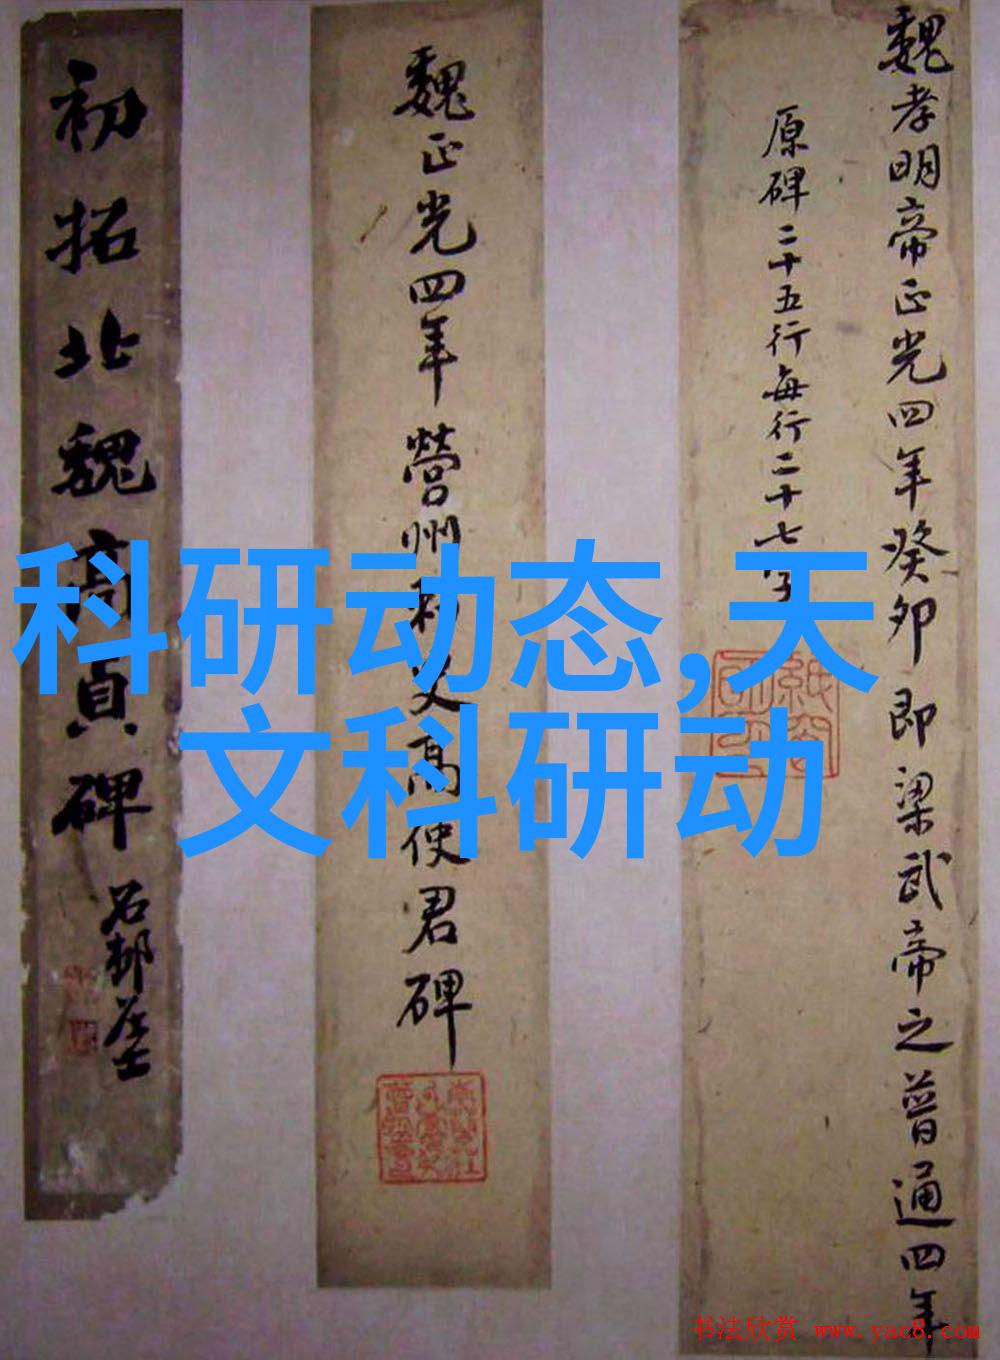 魏孝明帝正光四年癸卯即梁武帝之普通四年
原碑二十五行每行二十七字
魏正光四年营州刺史高使君碑
初拓北魏高貞碑
科研动态,天
文科研动
书法欣赏 www.yac8.com